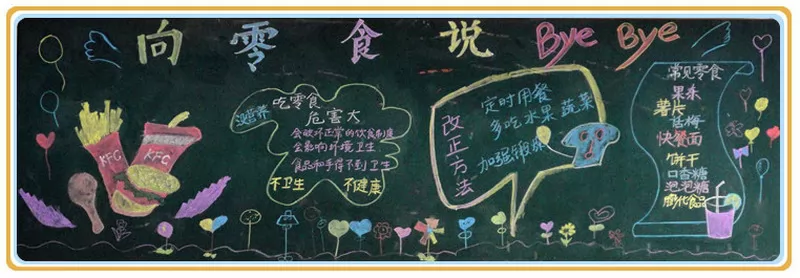 向零食说 Bye Bye
KFC
KFC
没营养
吃零食
危害大
会破坏正常的饮食制度
会影响环境卫生
食品和手得不到卫生
不卫生
不健康
改正方法
定时用餐
多吃水果 蔬菜
加强锻炼
常见零食
果冻
薯片
话梅
快餐面
饼干
口香糖
泡泡糖
膨化食品